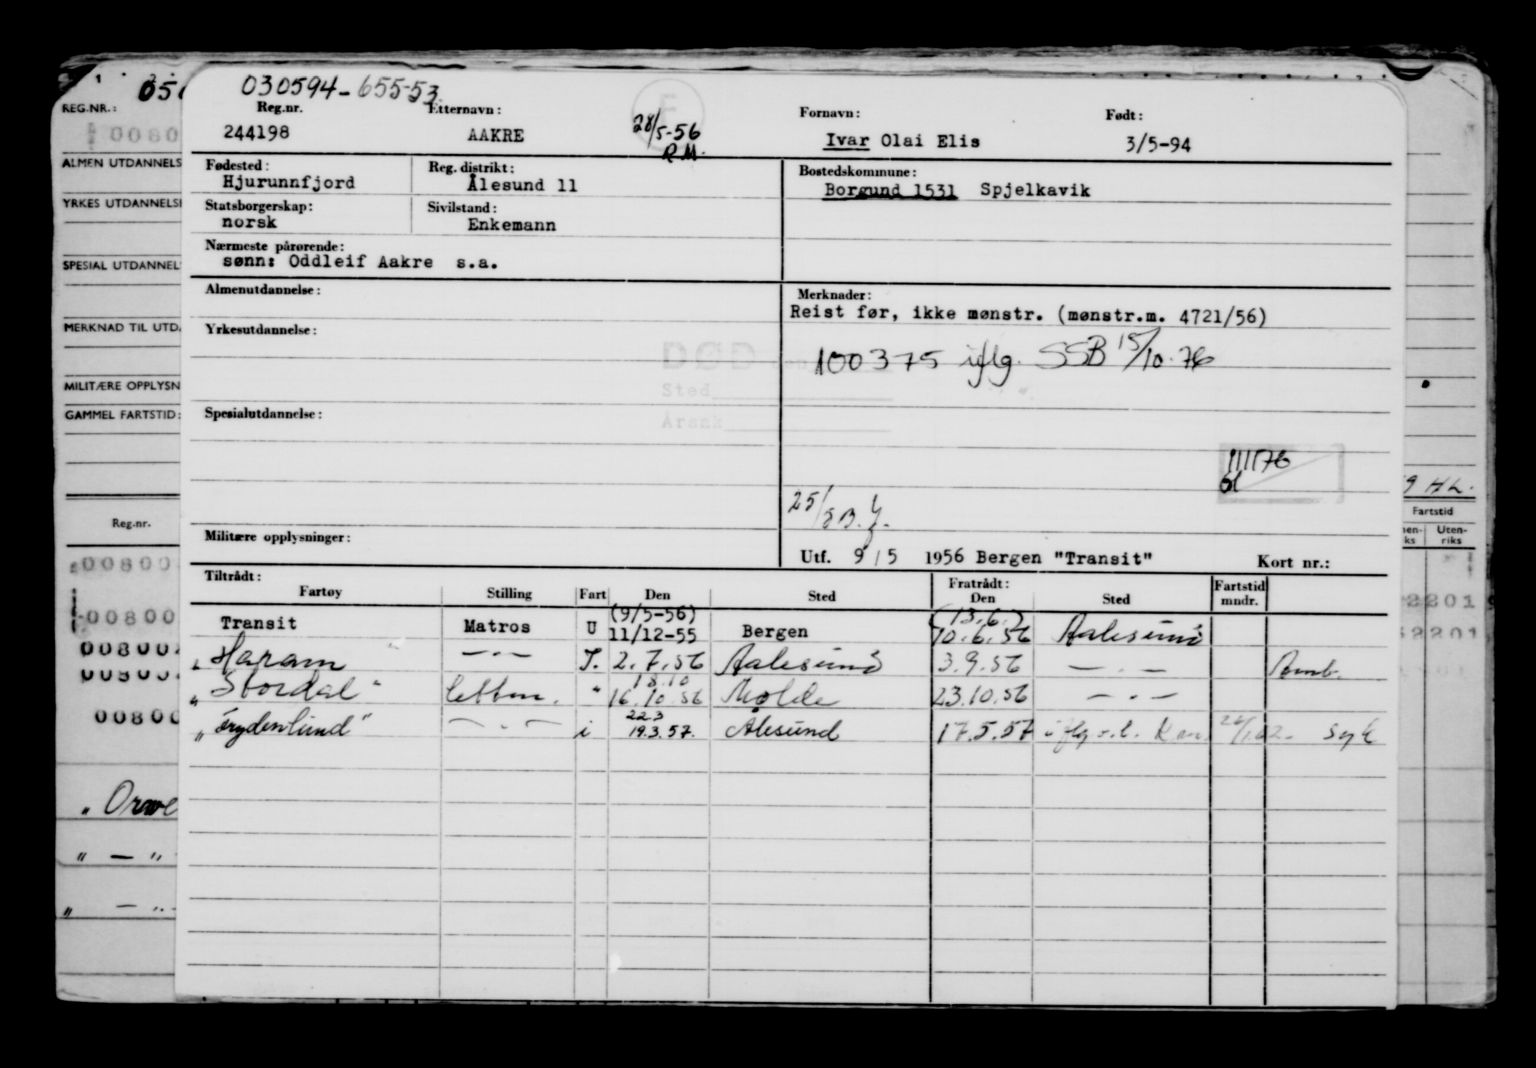 030594-65553
Reg.nr. Etternavn: Fornavn: Født:
244198 AAKRE 28/5-56 R.M. Ivar Olai Elis 3/5-94
Fødested: Reg. distrikt: Bostedskommune:
Hjurunnfjord Ålesund 11 Borgund 1531 Spjelkavik
Statsborgerskap: Sivilstand:
norsk Enkemann
Nærmeste pårørende:
sønn: Oddleif Aakre s.a.
Almenutdannelse: Merknader:
Reist før, ikke mønstr. (mønstr.m. 4721/56)
Yrkesutdannelse:
DØD den
100375 iflg. SSB 15/10.76
Sted
Årsak
Spesialutdannelse:
111176
25/8
Militære opplysninger:
Utf. 9/5 1956 Bergen "Transit" Kort nr.:
Tiltrådt: Fratrådt:
Fartøy Stilling Fart Den Sted Den Sted Fartstid mndr.
(9/5-56) (13.6.)
Transit Matros U 11/12-55 Bergen 10.6.56 Aalesund
"Haram — " — 2.7.56 Aalesund 3.9.56 — " —
18.10
"Stordal" " 16.10.56 Molde 23.10.56 — " —
22.3
"Frydenlund" — " — i 19.3.57. Ålesund 17.5.57 Syk
REG.NR.:
0080
ALMEN UTDANNELS
YRKES UTDANNELS
SPESIAL UTDANNEL
MERKNAD TIL UTD
MILITÆRE OPPLYSN
GAMMEL FARTSTID:
Reg.nr.
00800
00800
00800
0080
" —
" —
9 HL.
Fartstid
Uten-
riks
2201
2201